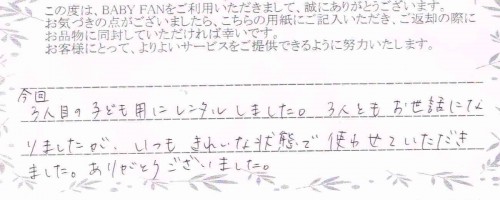 この度は、BABY FANをご利用いただきまして、誠にありがとうございます。
お気づきの点がございましたら、こちらの用紙にご記入いただき、ご返却の際に
お品物に同封していただければ幸いです。
お客様にとって、よりよいサービスをご提供できるように努力いたします。
今回
3人目の子ども用にレンタルしました。3人ともお世話にな
りましたが、いつもきれいな状態で使わせていただき
ました。ありがとうございました。